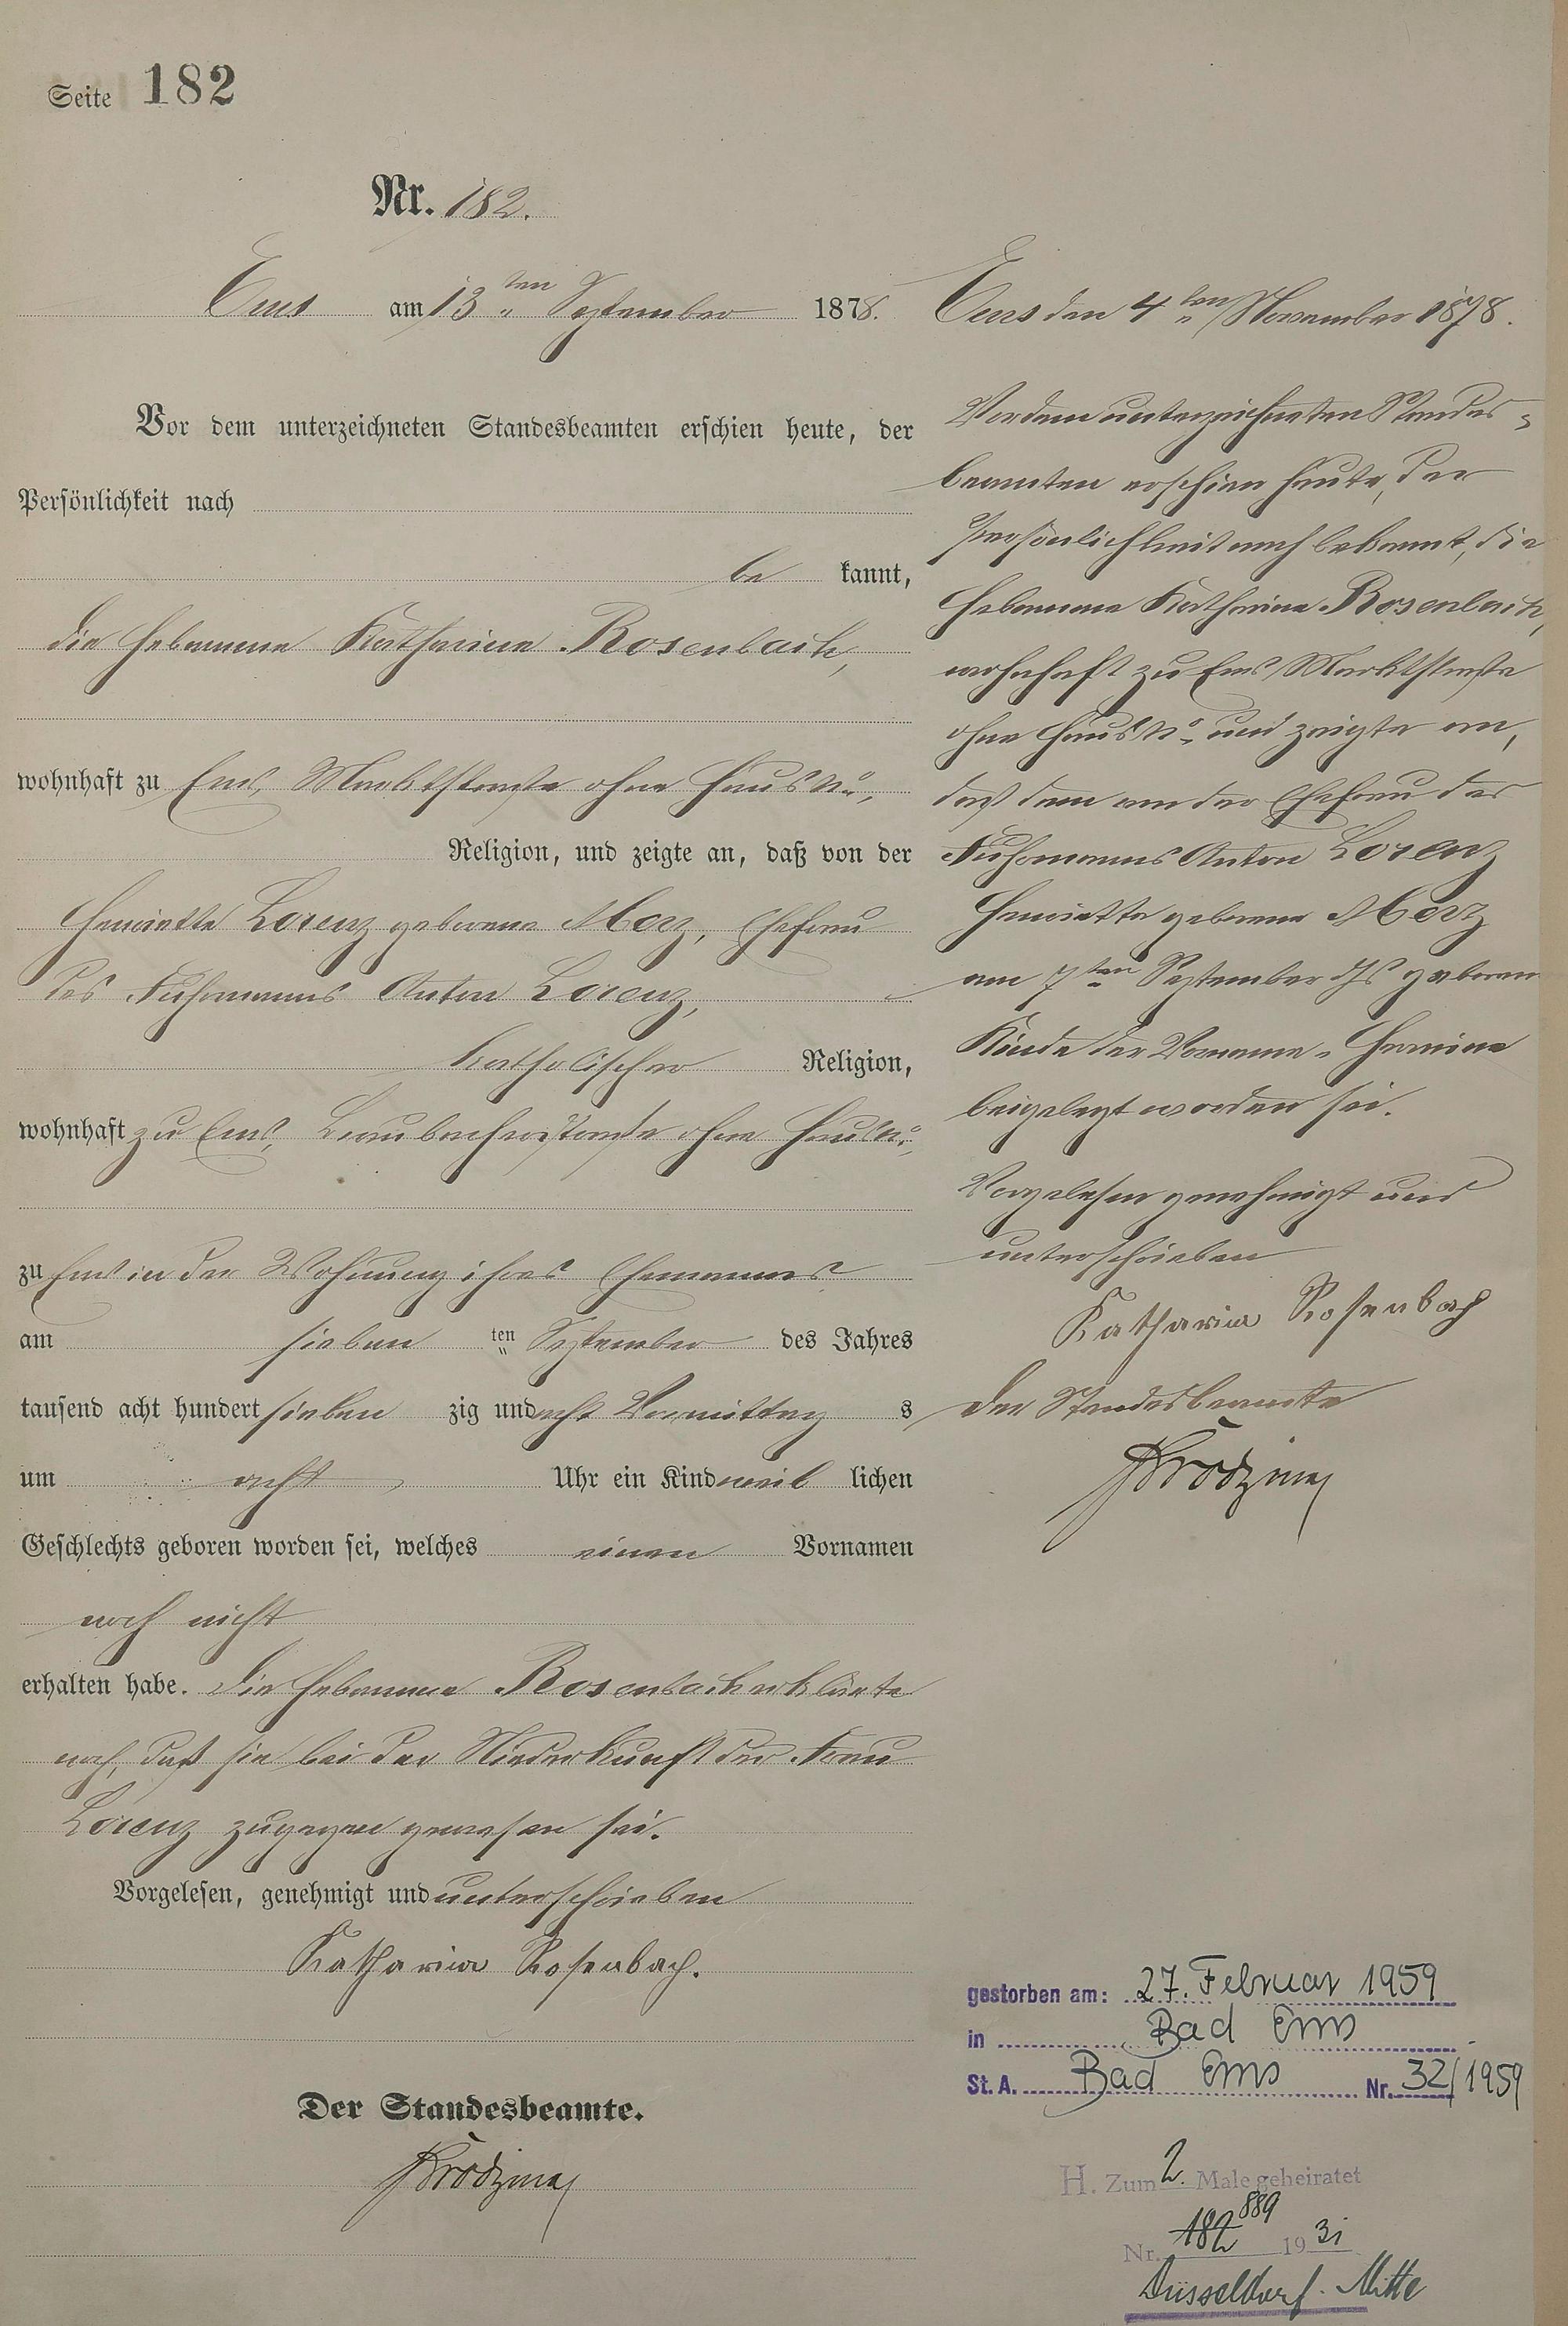 Seite 182
Nr. 182.
Ems am 13ten September 1878.
Vor dem unterzeichneten Standesbeamten erschien heute, der
Persönlichkeit nach
be kannt,
die Hebamme Katharina Rosenbach,
wohnhaft zu Ems, Marktstraße ohne Haus No,
Religion, und zeigte an, daß von der
Henriette Lorenz geborene Merz, Ehefrau
des Fuhrmanns Anton Lorenz,
katholischer Religion,
wohnhaft zu Ems, Braubacherstraße ohne Haus No,
zu Ems in der Wohnung ihres Ehemannes
am sieben ten September des Jahres
tausend acht hundert sieben zig und acht Vormittag s
um acht Uhr ein Kind weib lichen
Geschlechts geboren worden sei, welches einen Vornamen
noch nicht
erhalten habe. Die Hebamme Rosenbach erklärte
noch, daß sie bei der Niederkunft der Frau
Lorenz zugegen gewesen sei.
Vorgelesen, genehmigt und unterschrieben
Katharina Rosenbach.
Der Standesbeamte.
Ems den 4ten November 1878.
Vor dem unterzeichneten Standes-
beamten erschien heute, der
Persönlichkeit nach bekannt, die
Hebamme Katharina Rosenbach,
wohnhaft zu Ems Marktstraße
ohne Haus No und zeigte an,
daß dem von der Ehefrau des
Fuhrmanns Anton Lorenz
Henriette geborene Merz
am 7ten September d Js geborenen
Kinde der Vorname „Hermine
beigelegt worden sei.
Vorgelesen genehmigt und
unterschrieben
Katharina Rosenbach
Der Standesbeamte
gestorben am: 27. Februar 1959
in Bad Ems
St. A. Bad Ems Nr. 32/1959
H. Zum 2. Male geheiratet
Nr. 182 889 1931
Düsseldorf-Mitte